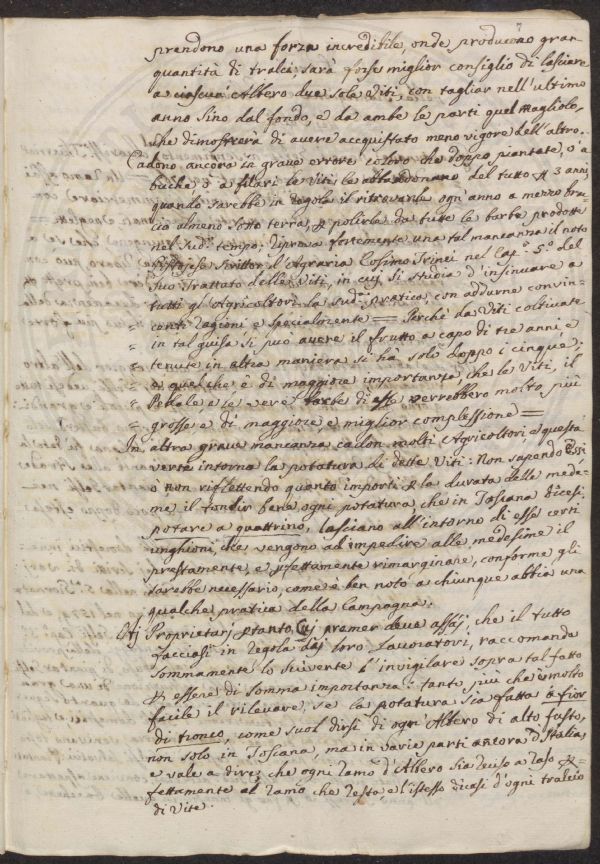 7
prendono una forza incredibile, onde producono gran
quantità di tralci, sarà forse miglior consiglio di lasciare
a ciascun Albero due sole Viti, con tagliar nell'ultimo
anno sino dal fondo, e da ambe le parti quel magliolo,
che dimostrerà di avere acquistato meno vigore dell'altro.
Cadono ancora in grave errore coloro che doppo piantate, ò a
buche, ò a filari le Viti, le abbandonano del tutto p 3 anni,
quando sarebbe in regola il ritrovarle ogn'anno a mezzo brac-
cio almeno sotto terra, e polirle da tutte le barbe prodotte
nel sud.° tempo; riprova fortemente una tal mancanza il noto
Pistojese Scrittor d'Agraria Cosimo Trinci nel Cap.° 5.° del
suo Trattato delle Viti, in cuj si studia d'insinuare a
tutti gl'Agricoltori la sud.a pratica, con addurne convin-
= centi ragioni e specialmente = Perchè da Viti coltivate
= in tal guisa si puo avere il frutto a capo di tre anni e
= tenute in altra maniera si hà solo doppo i cinque;
= e quel che è di maggiore importanza, che le Viti, il
= Pedale e le vere barbe di esse verrebbero molto più
= grosse e di maggiore e miglior complessione =
In altra grave mancanza cadon molti Agricoltori e questa
verte intorno la potatura di dette Viti: Non sapendo Essi
ò non riflettendo quanto importi p la durata delle mede-
me il fondir bene ogni potatura che in Toscana dicesi
potare a quattrino, lasciano all'intorno di esse certi
unghioni, che vengono ad impedire alle medesime il
prestamente, e pfettamente rimarginare, conforme gli
sarebbe necessario, come è ben noto a chiunque abbia una
qualche pratica della Campagna.
Aj Proprietarj ptanto, Cuj premer deve assaj, che il tutto
facciasi in regola daj loro Lavoratori, raccomanda
sommamente lo Scrivente l'invigilare sopra tal fatto
p essere di somma importanza: tanto più che è molto
facile il rilevare, se la potatura sia fatta a fior
di tronco, come suol dirsi di ogn'Albero di alto fusto,
non solo in Toscana, ma in varie parti ancora d'Italia,
e vale a dire, che ogni ramo d'Albero sia reciso a raso p-
fettamente al ramo che resta, e l'istesso dicasi d'ogni tralcio
di Vite.